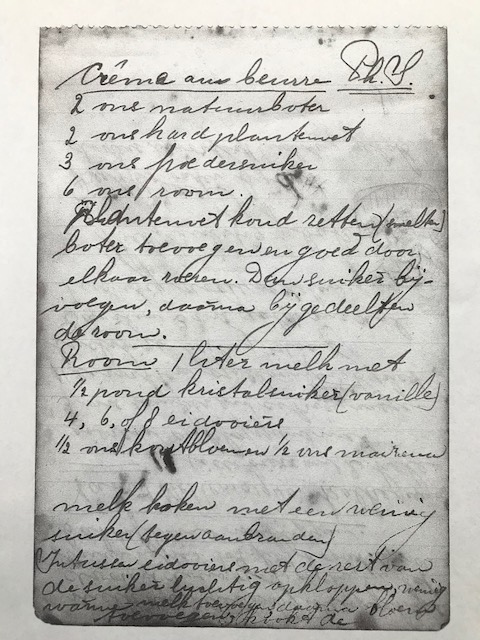 Crême aux beurre Ph. S.
2 ons natuurboter
2 ons hard plantenvet
3 ons poedersuiker
6 ons room.
Plantenvet koud zetten (smelten)
boter toevoegen en goed door
elkaar roeren. Dan suiker bij-
voegen, daarna bij gedeelten
de room.
Room 1 liter melk met
1/2 pond kristalsuiker (vanille)
4, 6, of 8 eidooiers
1/2 ons bloem en 1/2 ons maizena
melk koken met een weinig
suiker (tegen aanbranden)
Intussen eidooiers met de rest van
de suiker luchtig opkloppen, weinig
warme melk toevoegen daarna bloem
toevoegen, kookt de